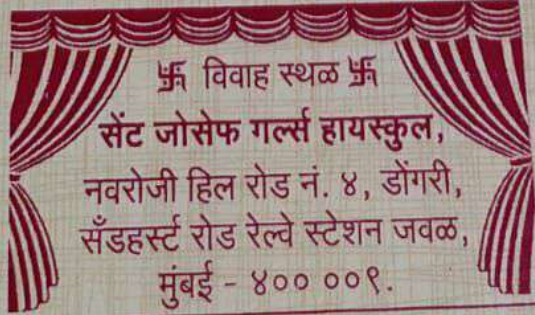 卐 विवाह स्थळ 卐
सेंट जोसेफ गर्ल्स हायस्कुल,
नवरोजी हिल रोड नं. ४, डोंगरी,
सँडहर्स्ट रोड रेल्वे स्टेशन जवळ,
मुंबई - ४०० ००९.